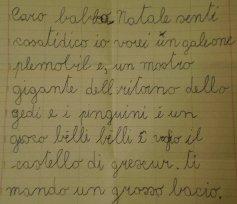 Caro babbo Natale senti
cosa ti dico io vorei un galeone
plemobil e, un mostro
gigante dell ritorno dello
gedi e i pinguini e un
gioco billi billi e vojo il
castello di grescur. ti
mando un grosso bacio.